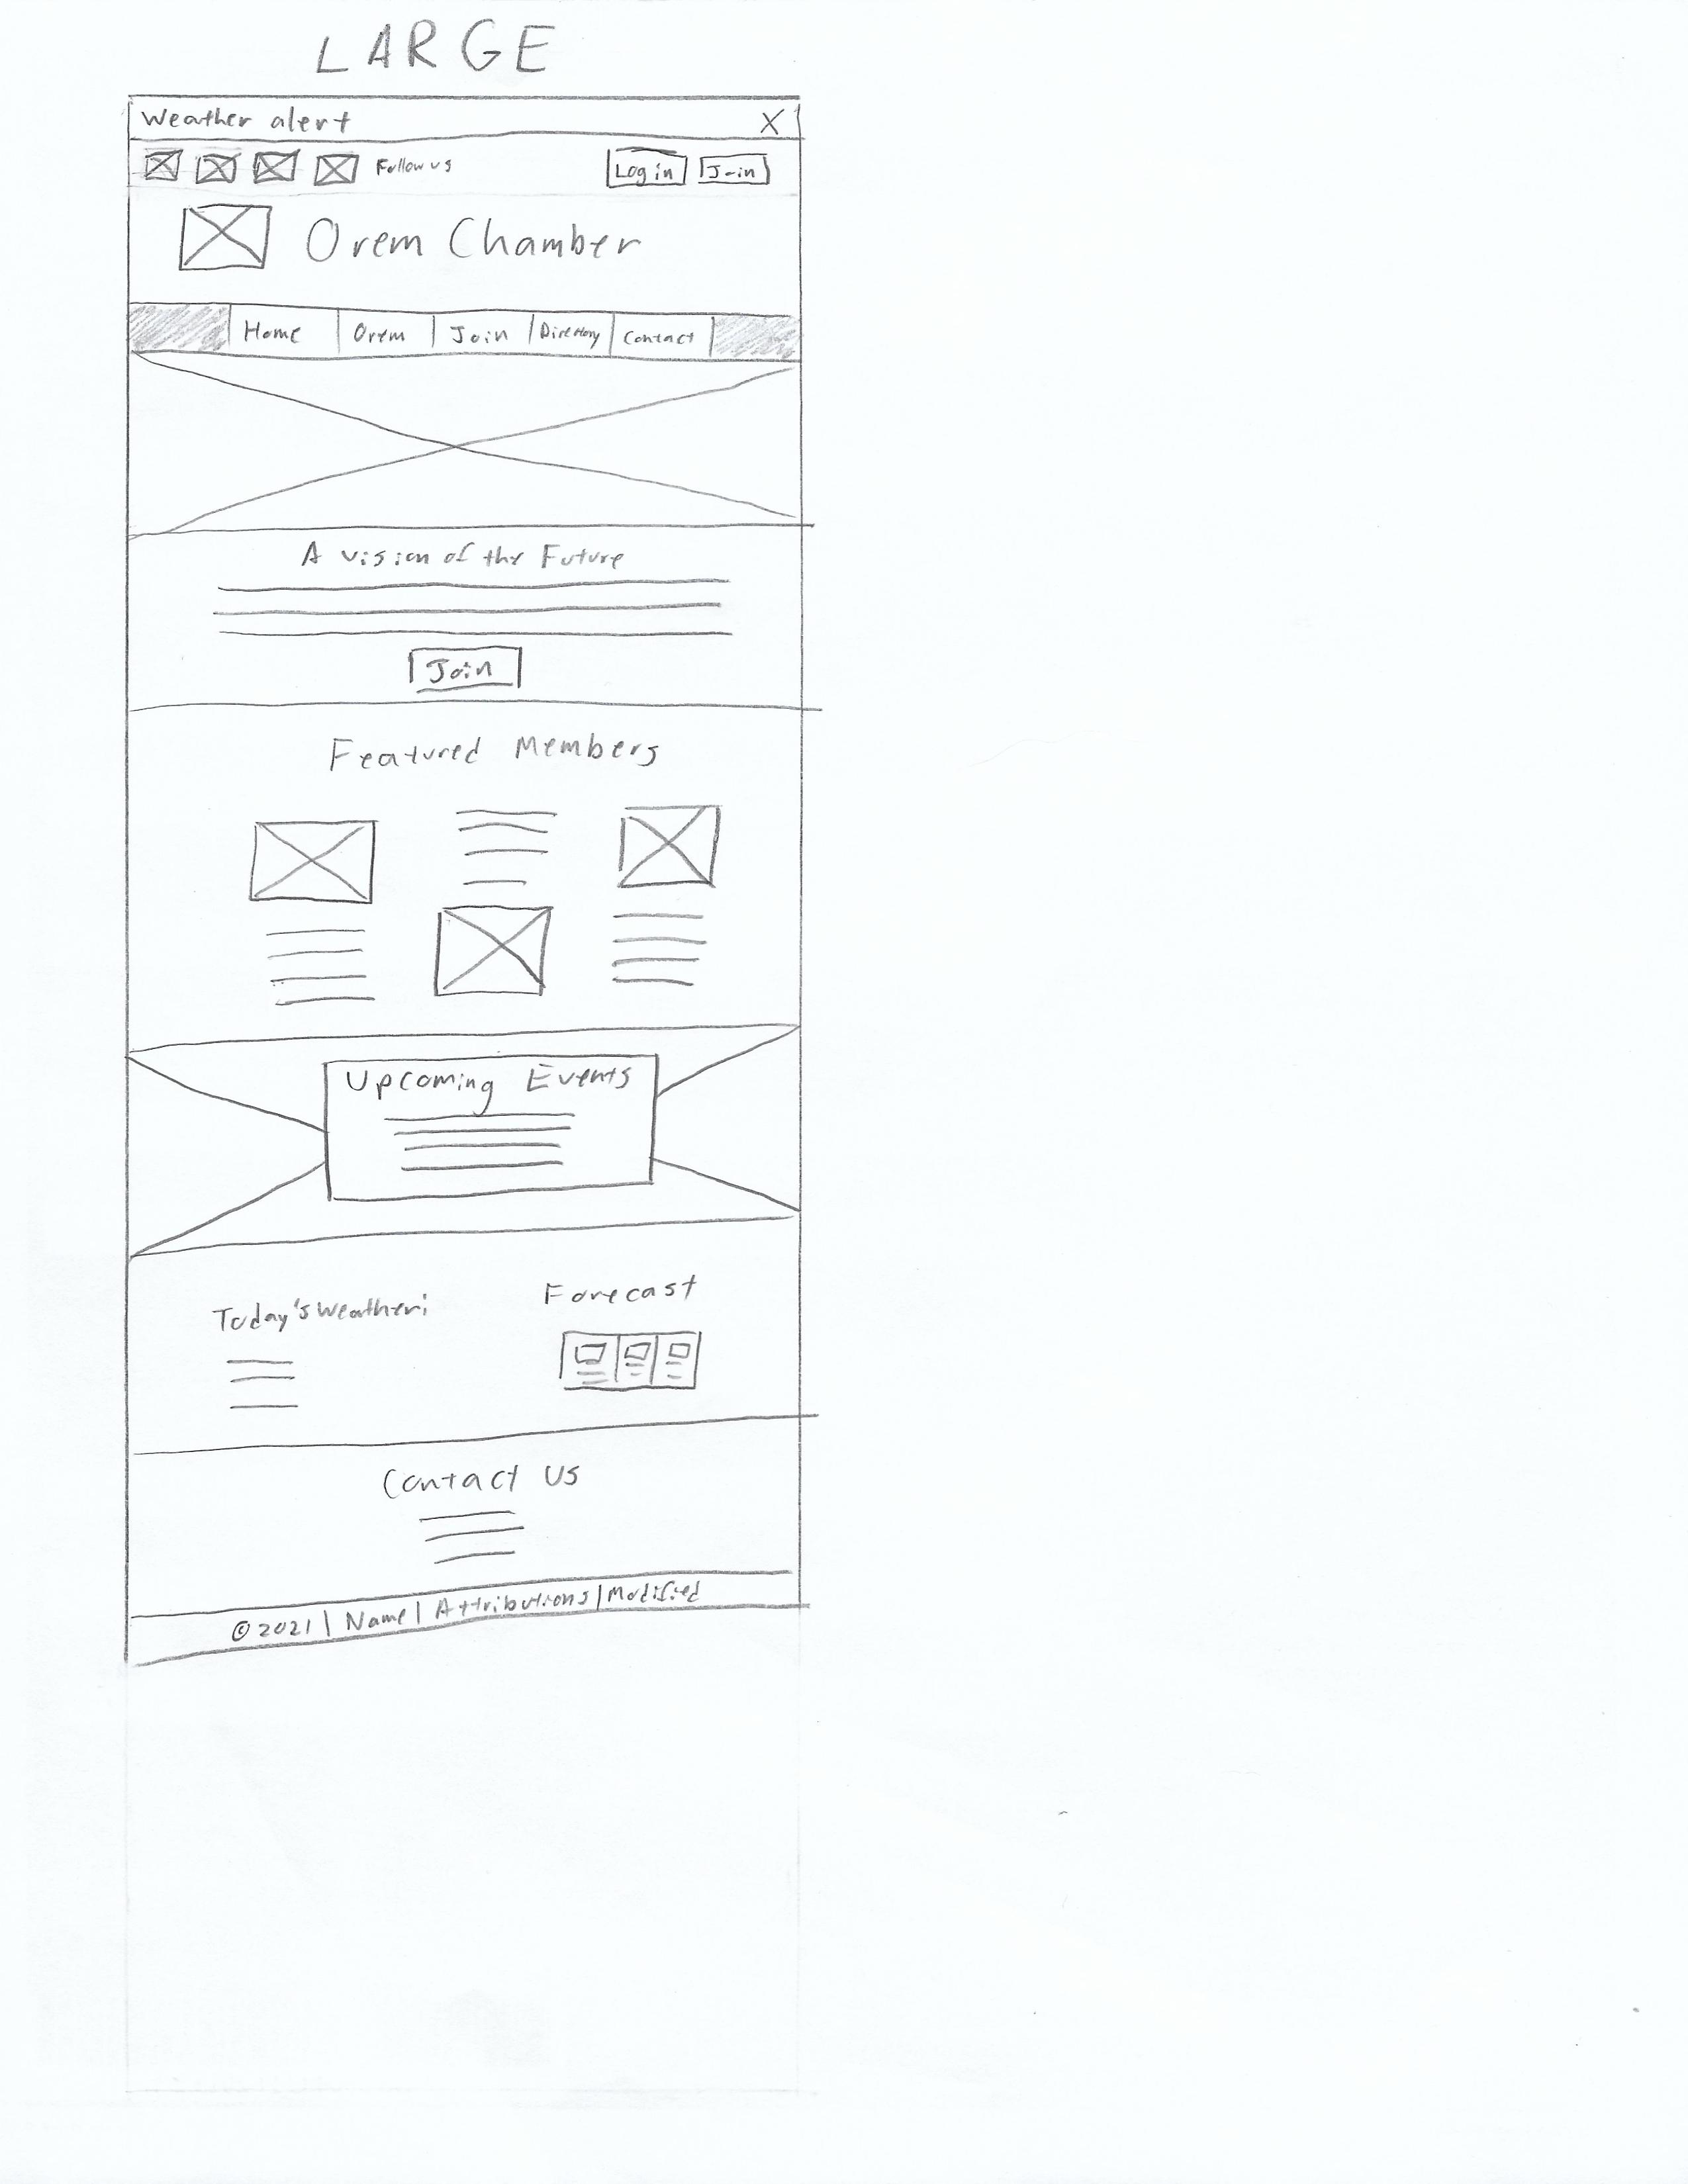 LARGE
Weather alert X
Follow us Log in Join
Orem Chamber
Home Orem Join Directory Contact
A vision of the Future
Join
Featured Members
Upcoming Events
Today's Weather:
Forecast
Contact Us
© 2021 | Name | Attributions | Modified